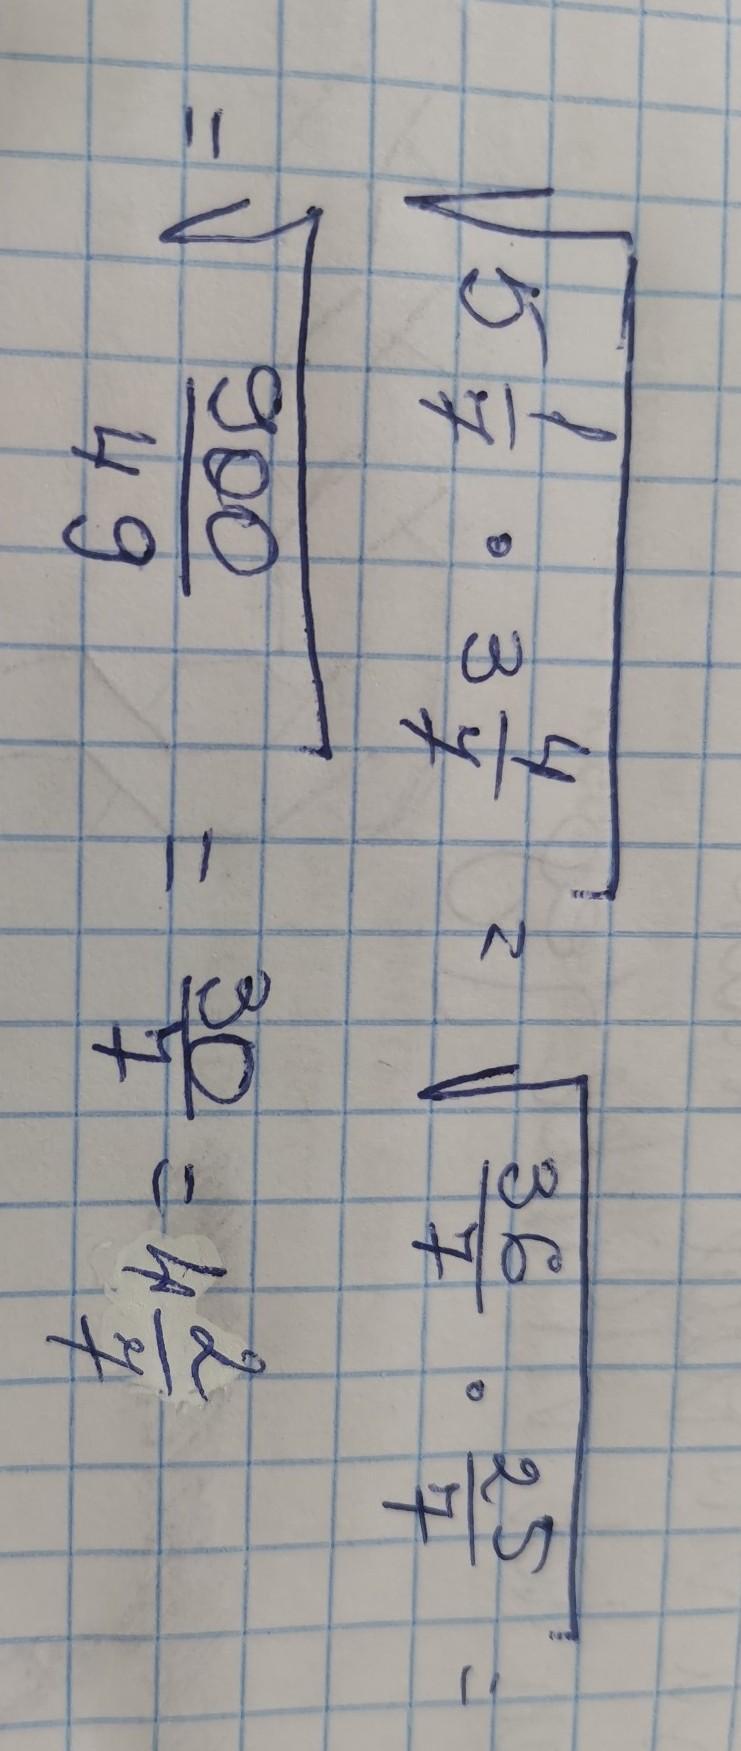 √(5 1/7 · 3 4/7) = √(36/7 · 25/7) =
= √(900/49) = 30/7 = 4 2/7